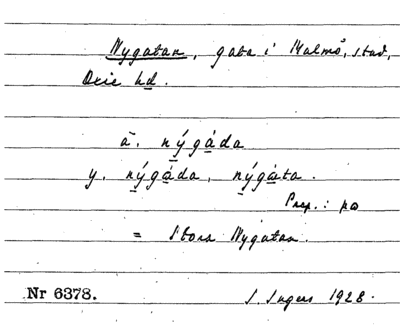 Nygatan, gata i Malmö, stad,
Oxie hd.
ä. nýgåda
y. nýgåda, nýgåta.
Prep.: på
= Stora Nygatan.
Nr 6378. I. Ingers 1928.